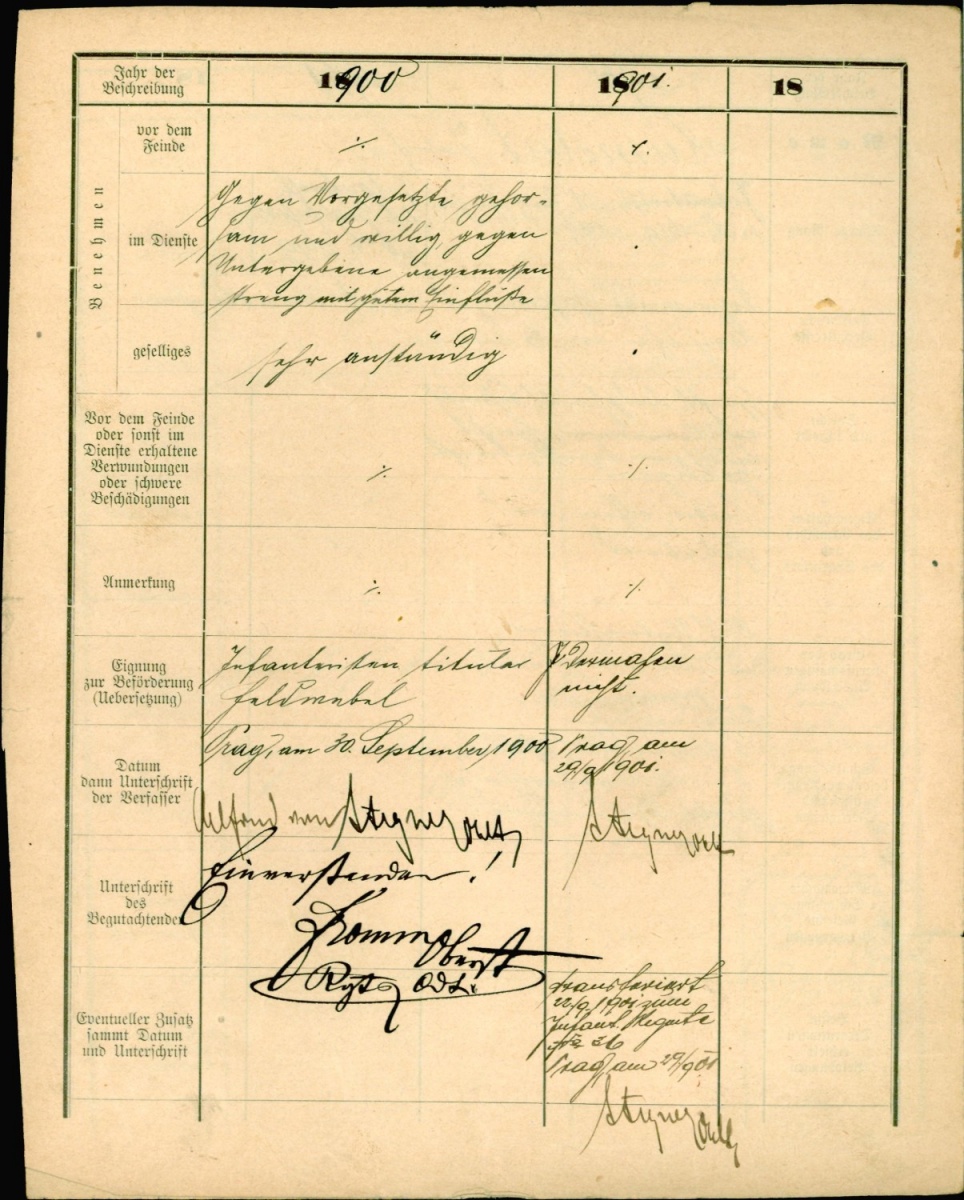 Jahr der
Beschreibung
18900
18901.
18
Benehmen
vor dem
Feinde
⁒
⁒
im Dienste
Gegen Vorgesetzte gehor-
sam und willig, gegen
Untergebene angemessen
streng mit gutem Einfluße
geselliges
sehr anständig
Vor dem Feinde
oder sonst im
Dienste erhaltene
Verwundungen
oder schwere
Beschädigungen
⁒
⁒
Anmerkung
⁒
⁒
Eignung
zur Beförderung
(Uebersetzung)
Infanteristen titular
Feldwebel
Dermalen
nicht.
Datum
dann Unterschrift
der Verfasser
Prag, am 30. September 1900
Prag am
29/9 1901.
von
Unterschrift
des
Begutachtenden
Einverstanden!
Oberst
Rgts
Eventueller Zusatz
sammt Datum
und Unterschrift
transferiert
22/9 1901 zum
Infant. Regmte
Prag am 29/9 01